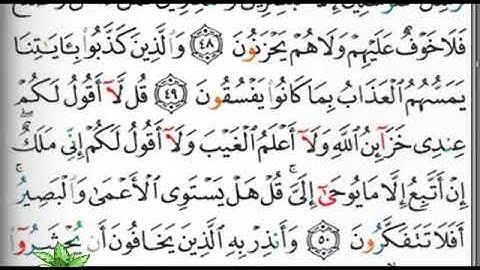 فَلَا خَوْفٌ عَلَيْهِمْ وَلَا هُمْ يَحْزَنُونَ ٤٨ وَالَّذِينَ كَذَّبُوا بِـَٔايَـٰتِنَا
يَمَسُّهُمُ الْعَذَابُ بِمَا كَانُوا يَفْسُقُونَ ٤٩ قُل لَّآ أَقُولُ لَكُمْ
عِندِى خَزَآئِنُ اللَّهِ وَلَآ أَعْلَمُ الْغَيْبَ وَلَآ أَقُولُ لَكُمْ إِنِّى مَلَكٌ ۖ
إِنْ أَتَّبِعُ إِلَّا مَا يُوحَىٰٓ إِلَىَّ ۚ قُلْ هَلْ يَسْتَوِى الْأَعْمَىٰ وَالْبَصِيرُ ۚ
أَفَلَا تَتَفَكَّرُونَ ٥٠ وَأَنذِرْ بِهِ الَّذِينَ يَخَافُونَ أَن يُحْشَرُوٓا